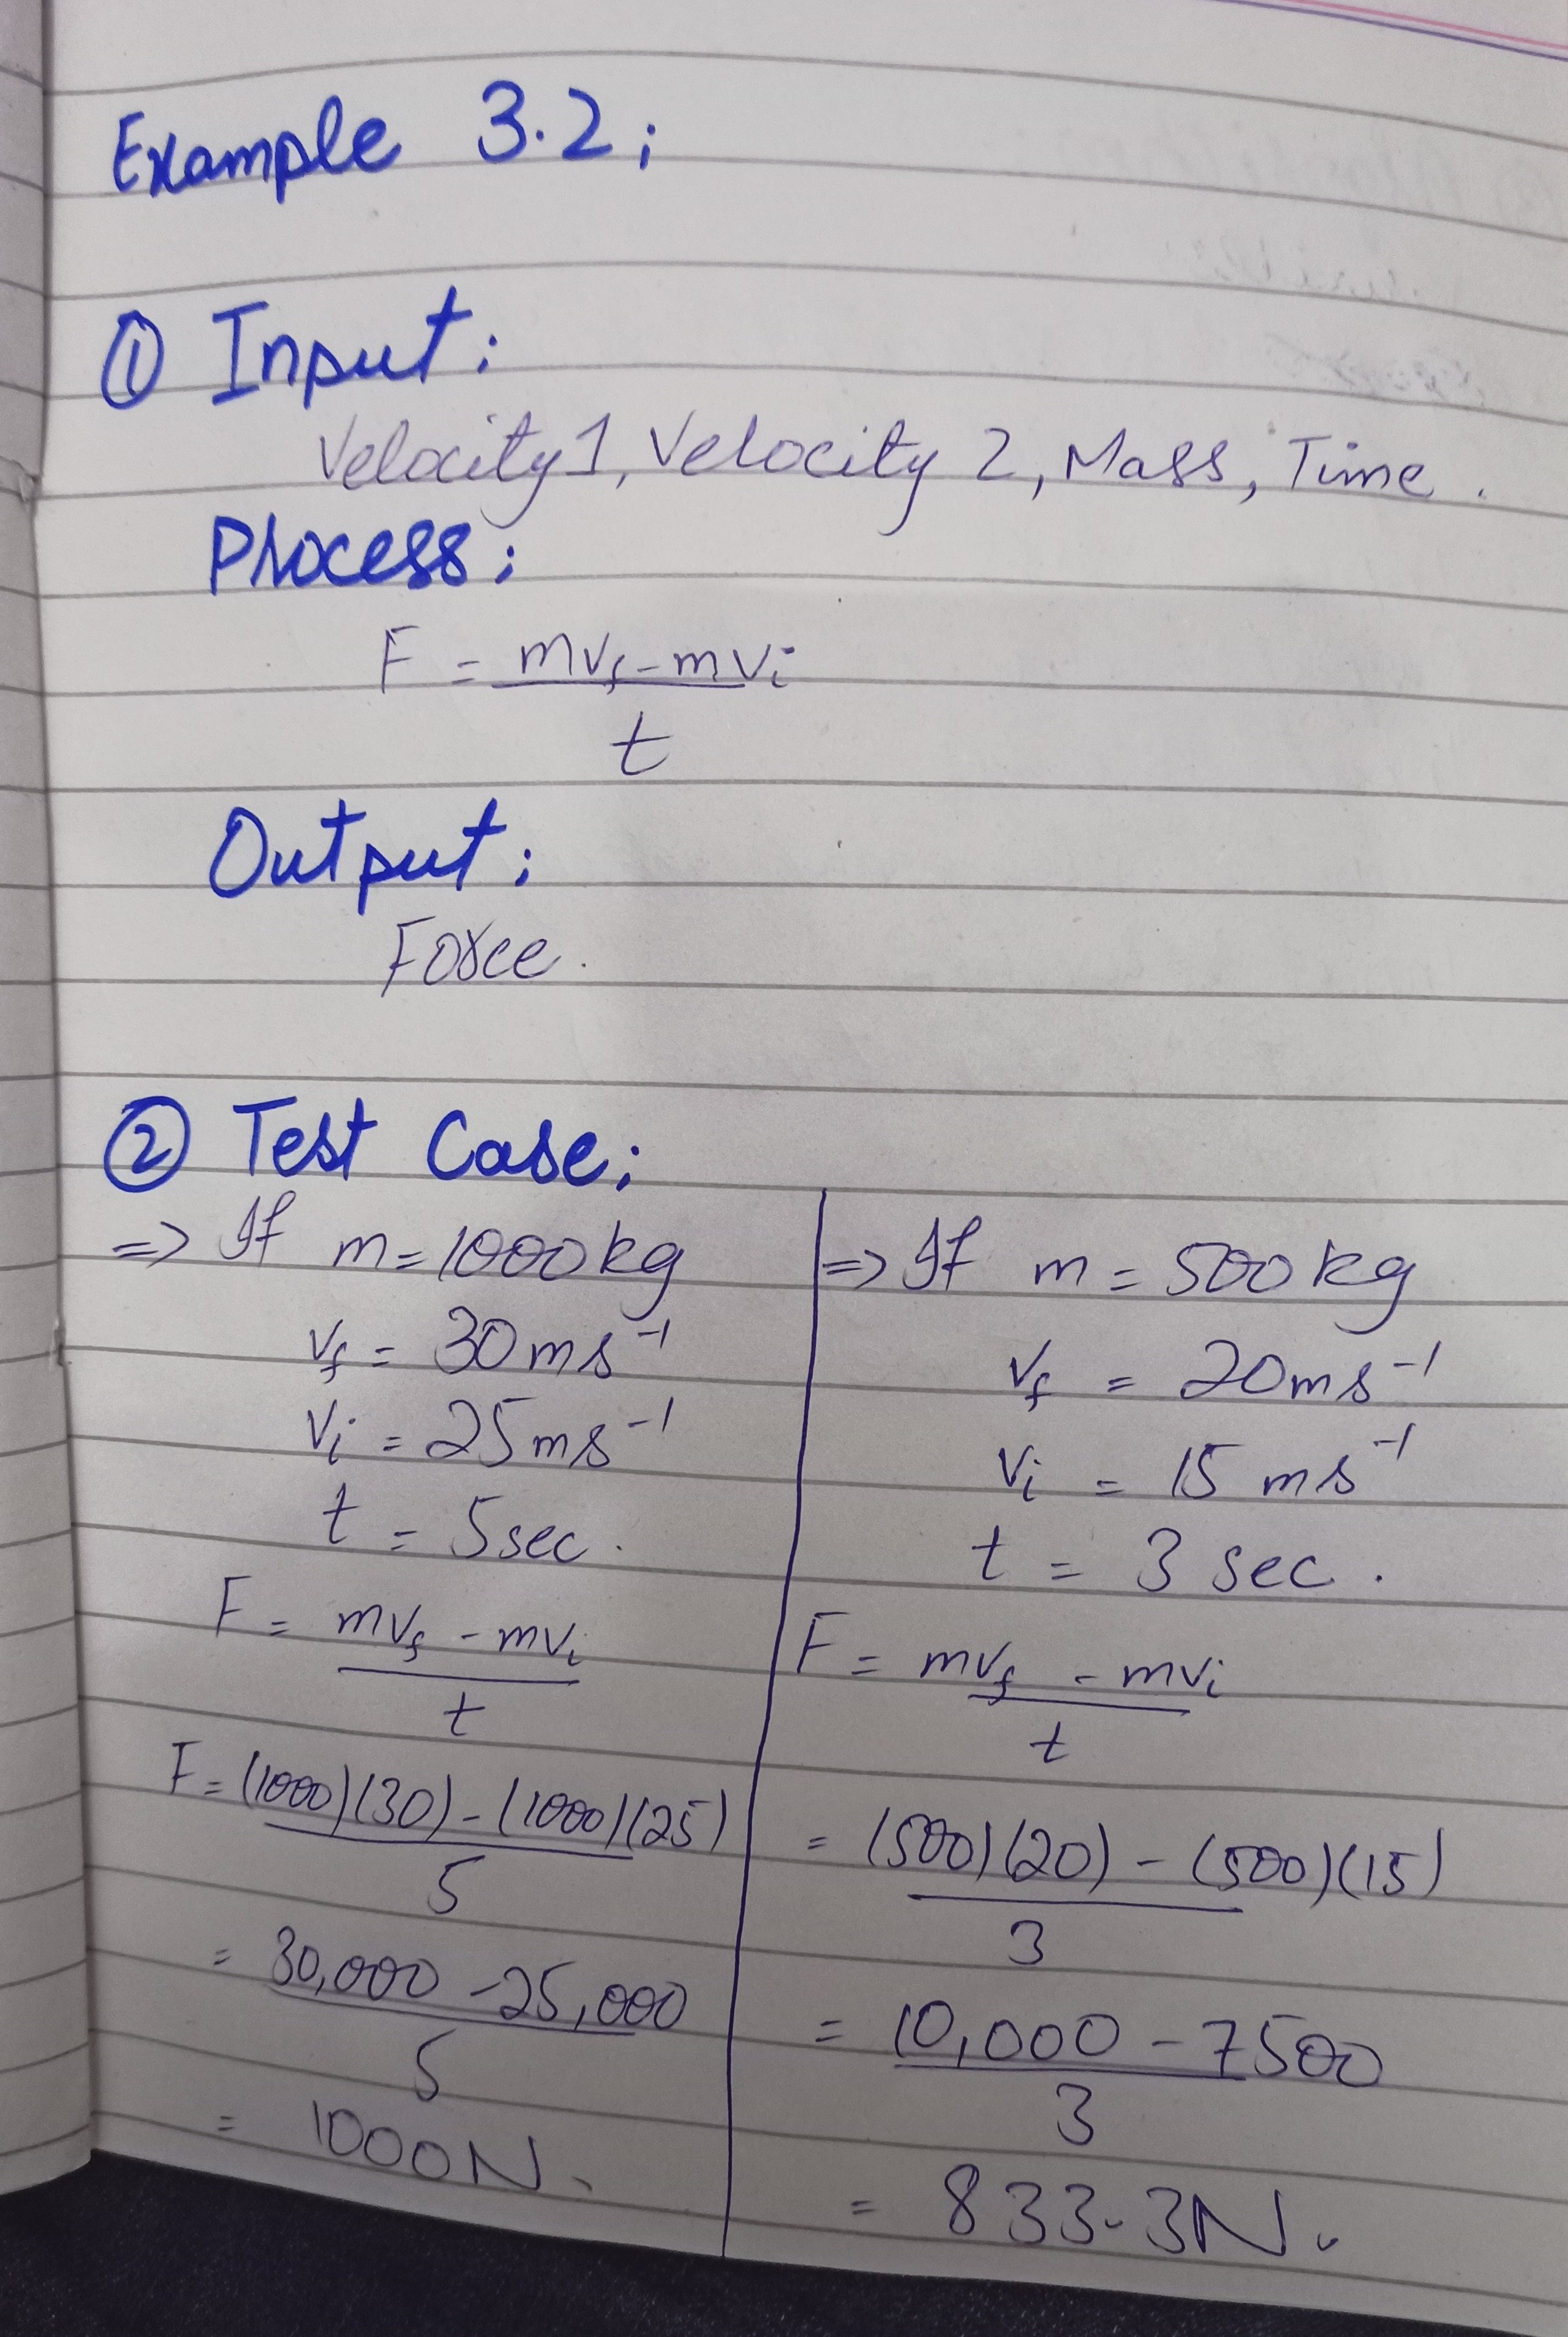 Example 3.2;
① Input:
Velocity 1, Velocity 2, Mass, Time.
Process:
F = mvf - mvi
t
Output:
Force.
② Test Case:
=> If m = 1000kg
vf = 30ms⁻¹
vi = 25ms⁻¹
t = 5sec.
F = mvf - mvi
t
F = (1000)(30) - (1000)(25)
5
= 30,000 - 25,000
5
= 1000N.
=> If m = 500kg
vf = 20ms⁻¹
vi = 15 ms⁻¹
t = 3 sec.
F = mvf - mvi
t
= (500)(20) - (500)(15)
3
= 10,000 - 7500
3
= 833.3N.